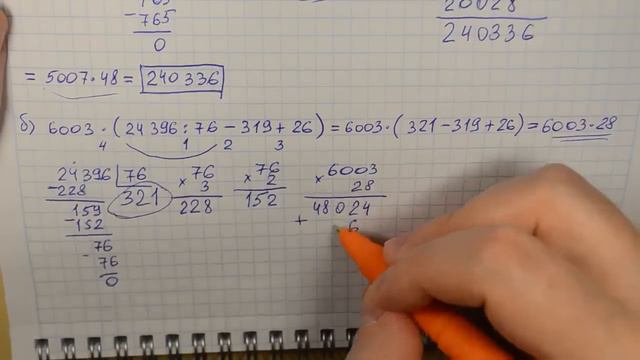 765
0
20028
240336
= 5007·48 = 240336
б) 6003·(24396:76-319+26)=6003·(321-319+26)=6003·28
4 1 2 3
24396 76
-228 321
159
-152
76
-76
0
×76
3
228
×76
2
152
×6003
28
48024
+ 6